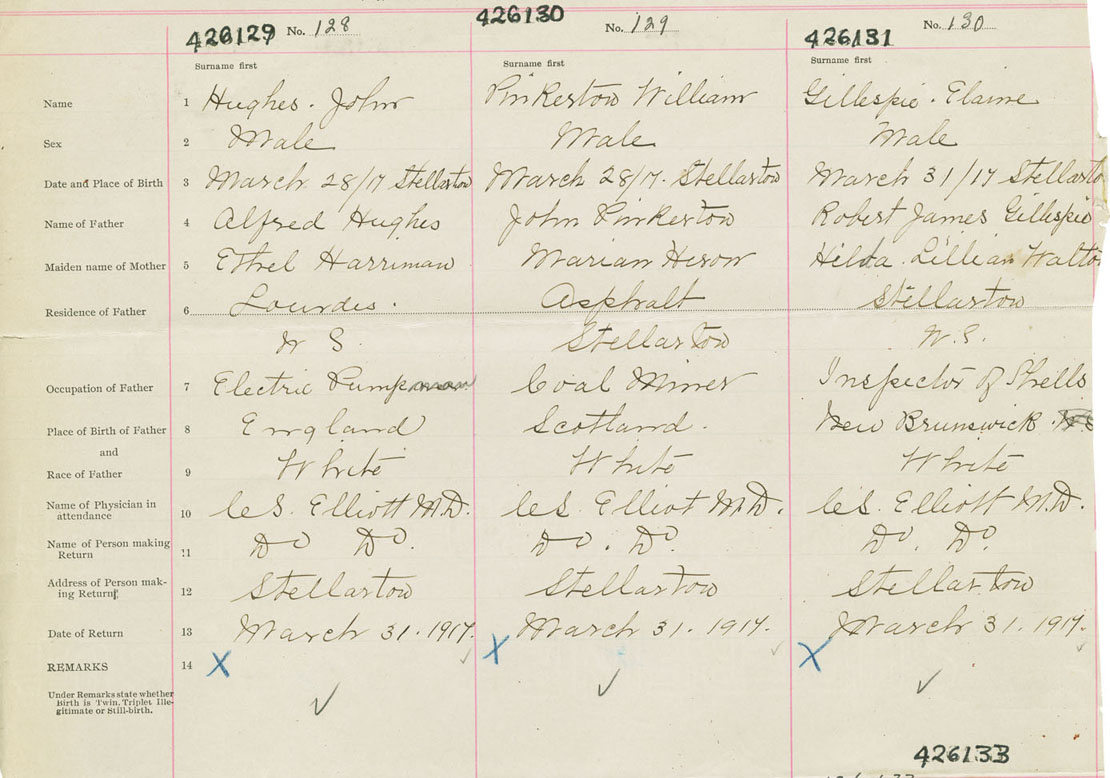 426129 No. 128
426130 No. 129
426131 No. 130
Surname first Surname first Surname first
Name 1 Hughes. John Pinkerton William Gillespie. Elaine
Sex 2 Male Male Male
Date and Place of Birth 3 March 28/17 Stellarton March 28/17. Stellarton March 31/17 Stellarto
Name of Father 4 Alfred Hughes John Pinkerton Robert James Gillespie
Maiden name of Mother 5 Ethel Harriman Marian Heron Hilda Lillian Walton
Residence of Father 6 Lourdes. Asphalt Stellarton
N S. Stellarton N.S.
Occupation of Father 7 Electric Pumpman Coal Miner Inspector of Shells
Place of Birth of Father 8 England Scotland. New Brunswick.
and
Race of Father 9 White White White
Name of Physician in
attendance 10 C.S. Elliott M.D. C.S. Elliot M.D. C.S. Elliott M.D.
Name of Person making
Return 11 Do Do. Do. Do. Do. Do.
Address of Person mak-
ing Return 12 Stellarton Stellarton Stellarton
Date of Return 13 March 31. 1917. March 31. 1917. March 31. 1917.
REMARKS 14 X X X
Under Remarks state whether
Birth is Twin, Triplet Ille-
gitimate or Still-birth.
426133